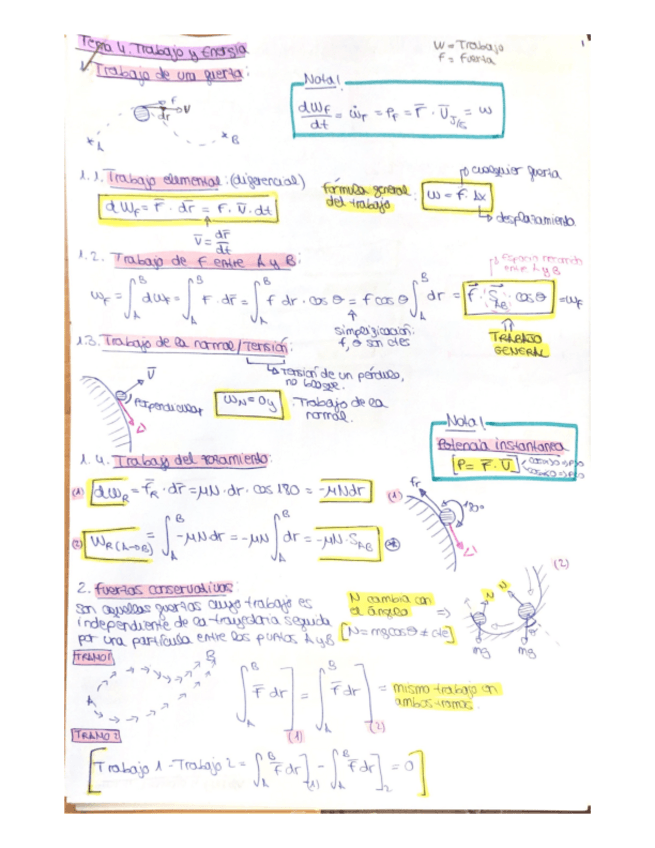 Tema 4. Trabajo y Energía
W = Trabajo
F = Fuerza
1
Trabajo de una fuerza:
Nota!
dW_F/dt = Ẇ_F = P_F = F̄ · Ū J/s = W
F
V
dr
A
B
1.1. Trabajo elemental: (diferencial)
fórmula general del trabajo: W = F · Δx
cualquier fuerza
desplazamiento
dW_F = F̄ · dr̄ = F · Ū · dt
Ū = dr̄/dt
1.2. Trabajo de F entre A y B:
Espacio recorrido entre A y B
W_F = ∫_A^B dW_F = ∫_A^B F · dr̄ = ∫_A^B F dr · cos θ = F cos θ ∫_A^B dr = F̄ · S_AB · cos θ = W_F
simplificación: F, θ son ctes
TRABAJO GENERAL
1.3. Trabajo de la normal/Tensión:
Tensión de un péndulo, no bloque.
Ū
Perpendicular
W_N = 0 J
Trabajo de la normal.
Nota!
Potencia instantanea
[P = F̄ · Ū]
1.4. Trabajo del rozamiento:
(1) dW_R = F̄_R · dr̄ = μN · dr · cos 180 = -μN dr
(1)
Fr
180º
(2) W_R(A→B) = ∫_A^B -μN dr = -μN ∫_A^B dr = -μN · S_AB
(2)
2. Fuerzas conservativas:
Son aquellas fuerzas cuyo trabajo es
independiente de la trayectoria seguida
por una partícula entre los puntos A y B
N cambia con
el ángulo =>
[N = mg cos θ ≠ cte]
N
N
mg
mg
TRAMO 1
A
B
∫_A^B F̄ dr]_(1) = ∫_A^B F̄ dr]_(2) = mismo trabajo en
ambos tramos.
TRAMO 2
[Trabajo 1 - Trabajo 2 = ∫_A^B F̄ dr]_(1) - ∫_A^B F̄ dr]_2 = 0]